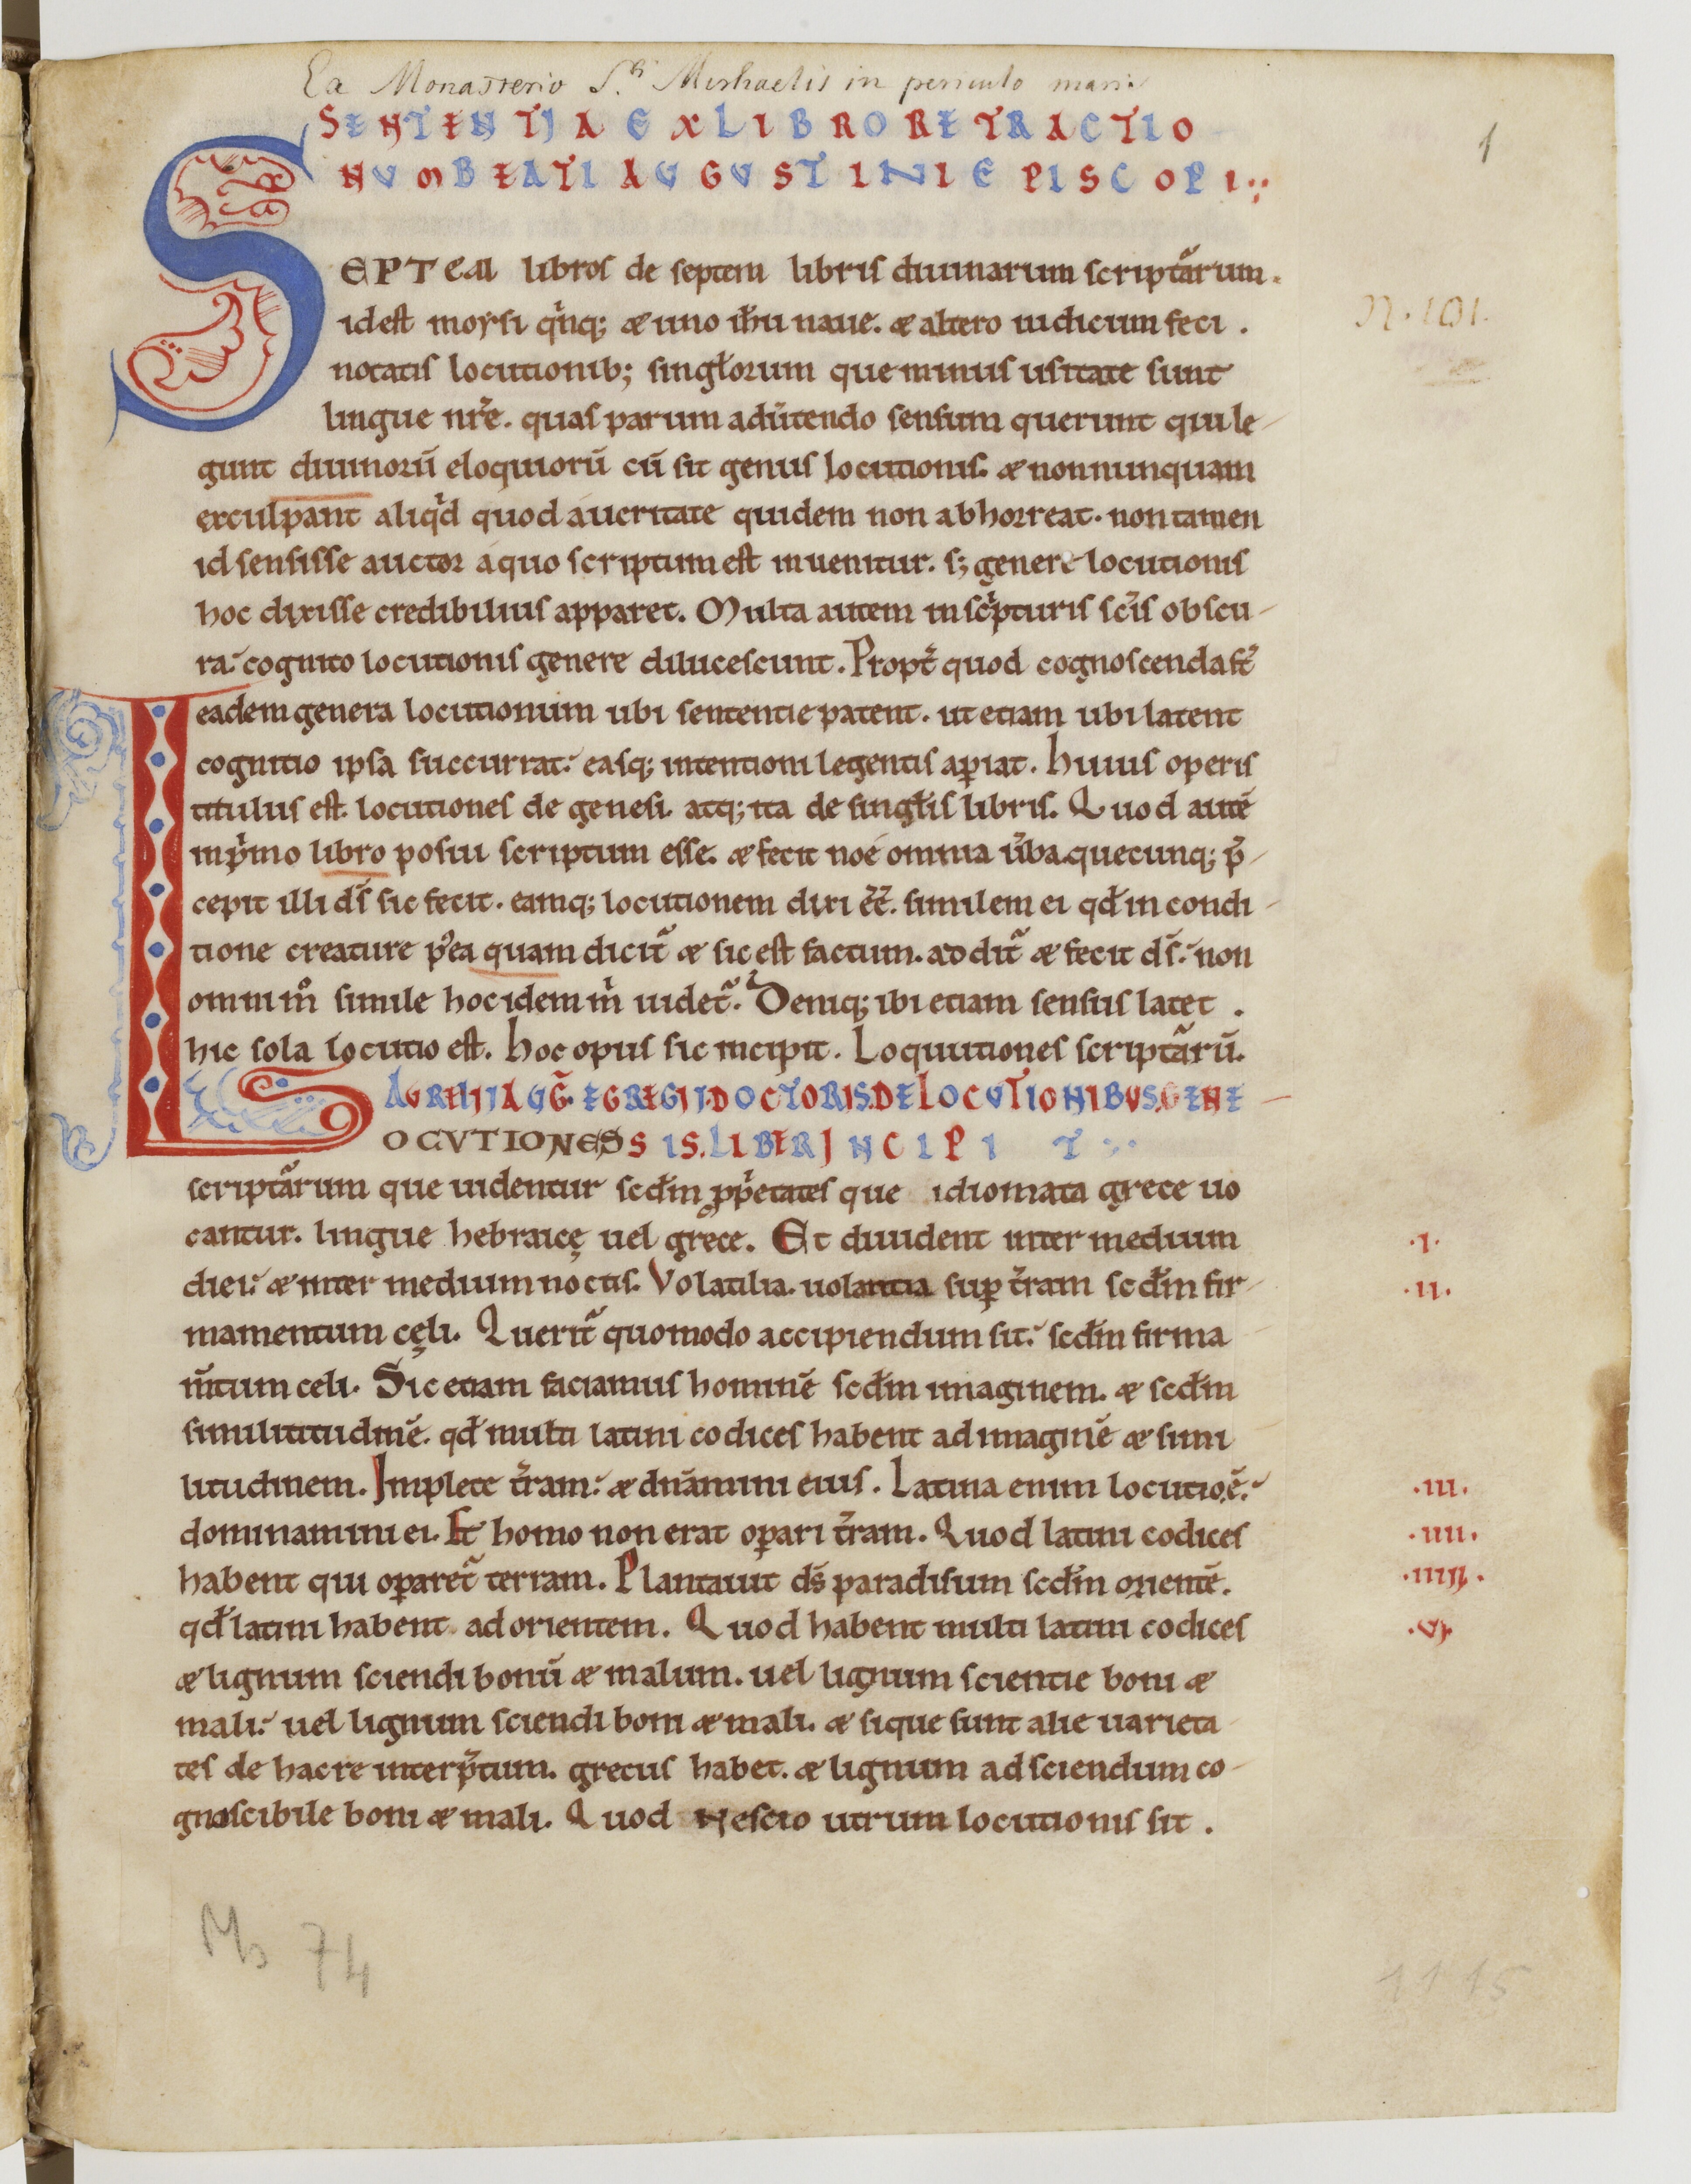 Ex Monasterio S.ti Michaelis in periculo maris
SENTENTIA EX LIBRO RETRACTIO
NVM BEATI AVGVSTINI EPISCOPI
1
SEPTEM libros de septem libris diuinarum scriptãrum.
N. 101.
idest moysi q'nq; & uno ihũ naue. & altero iudicum feci.
notatis locutionib; singłorum que minus usitate sunt
lingue nr̃e. quas parum adũtendo sensum querunt qui le-
gunt diuinorũ eloquiorũ cũ sit genus locutionis. & nonnunquam
exculpant aliq'd quod a ueritate quidem non abhorreat. non tamen
id sensisse auctor a quo scriptum est inuenitur. s; genere locutionis
hoc dixisse credibilius apparet. Multa autem in sc'pturis sc̃is obscu-
ra. cognito locutionis genere dilucescunt. Propt̃ quod cognoscenda st̃
eadem genera locutionum ubi sententie patent. ut etiam ubi latent
cognitio ipsa succurrat. easq; intentioni legentis apiat. Huius operis
titulus est. locutiones de genesi. atq; ita de singłis libris. Quod autẽ
in p'mo libro posui scriptum esse. & fecit noe omnia ũba. quecunq; p̃-
cepit illi ds̃ sic fecit. eamq; locutionem dixi eẽ. similem ei qđ in condi-
tione creature p'ea quam dicit̃ & sic est factum. addit̃ & fecit ds̃. non
omni m° simile hoc idem m' uidet̃. Deniq; ibi etiam sensus latet.
hic sola locutio est. Hoc opus sic incipit. Loquutiones scriptãrũ.
AVRELII AVG̃. EGREGII DOCTORIS. DE LOCVTIONIBVS. GENE-
LOCVTIONES SIS. LIBER INCIPIT
scriptãrum que uidentur scđm pp'etates que idiomata grece uo
cantur. lingue hebraicę uel grece. Et diuident inter medium
.i.
diei. & inter medium noctis. Volatilia. uolantia sup t̃ram scđm fir-
.ii.
mamentum cęli. Querit̃ quomodo accipiendum sit. scđm firma
m̃tum celi. Sic etiam faciamus hominẽ scđm imaginem. & scđm
similititudinẽ. qđ multi latini codices habent ad imaginẽ & simi
litudinem. Implete t̃ram. & dñamini eius. Latina enim locutio ẽ.
.iii.
dominamini ei. Et homo non erat opari t̃ram. Quod latini codices
.iiii.
habent qui oparet̃ terram. Plantauit ds̃ paradisum scđm orientẽ.
qđ latini habent ad orientem. Quod habent multi latini codices
.vi.
& lignum sciendi bonũ & malum. uel lignum scientie boni &
mali. uel lignum sciendi boni & mali. & si que sunt alie uarieta
tes de hac re interp̃tum. grecus habet. & lignum ad sciendum co-
gnoscibile boni & mali. Quod nescio utrum locutionis sit.
Ms 74
1115